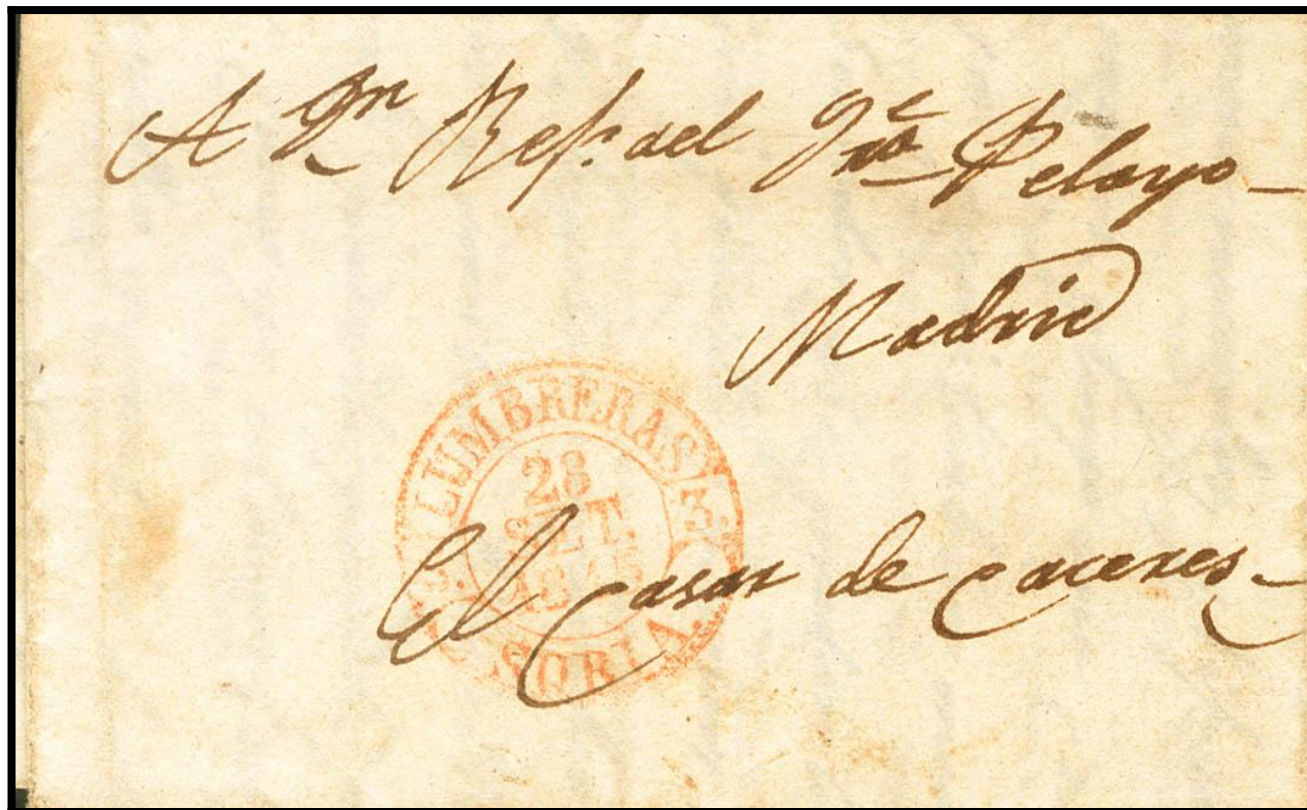 A Dn Rafael Jose Pelayo
Madrid
LUMBRERAS 3.
28
SET.
SORIA.
El Casar de Caceres